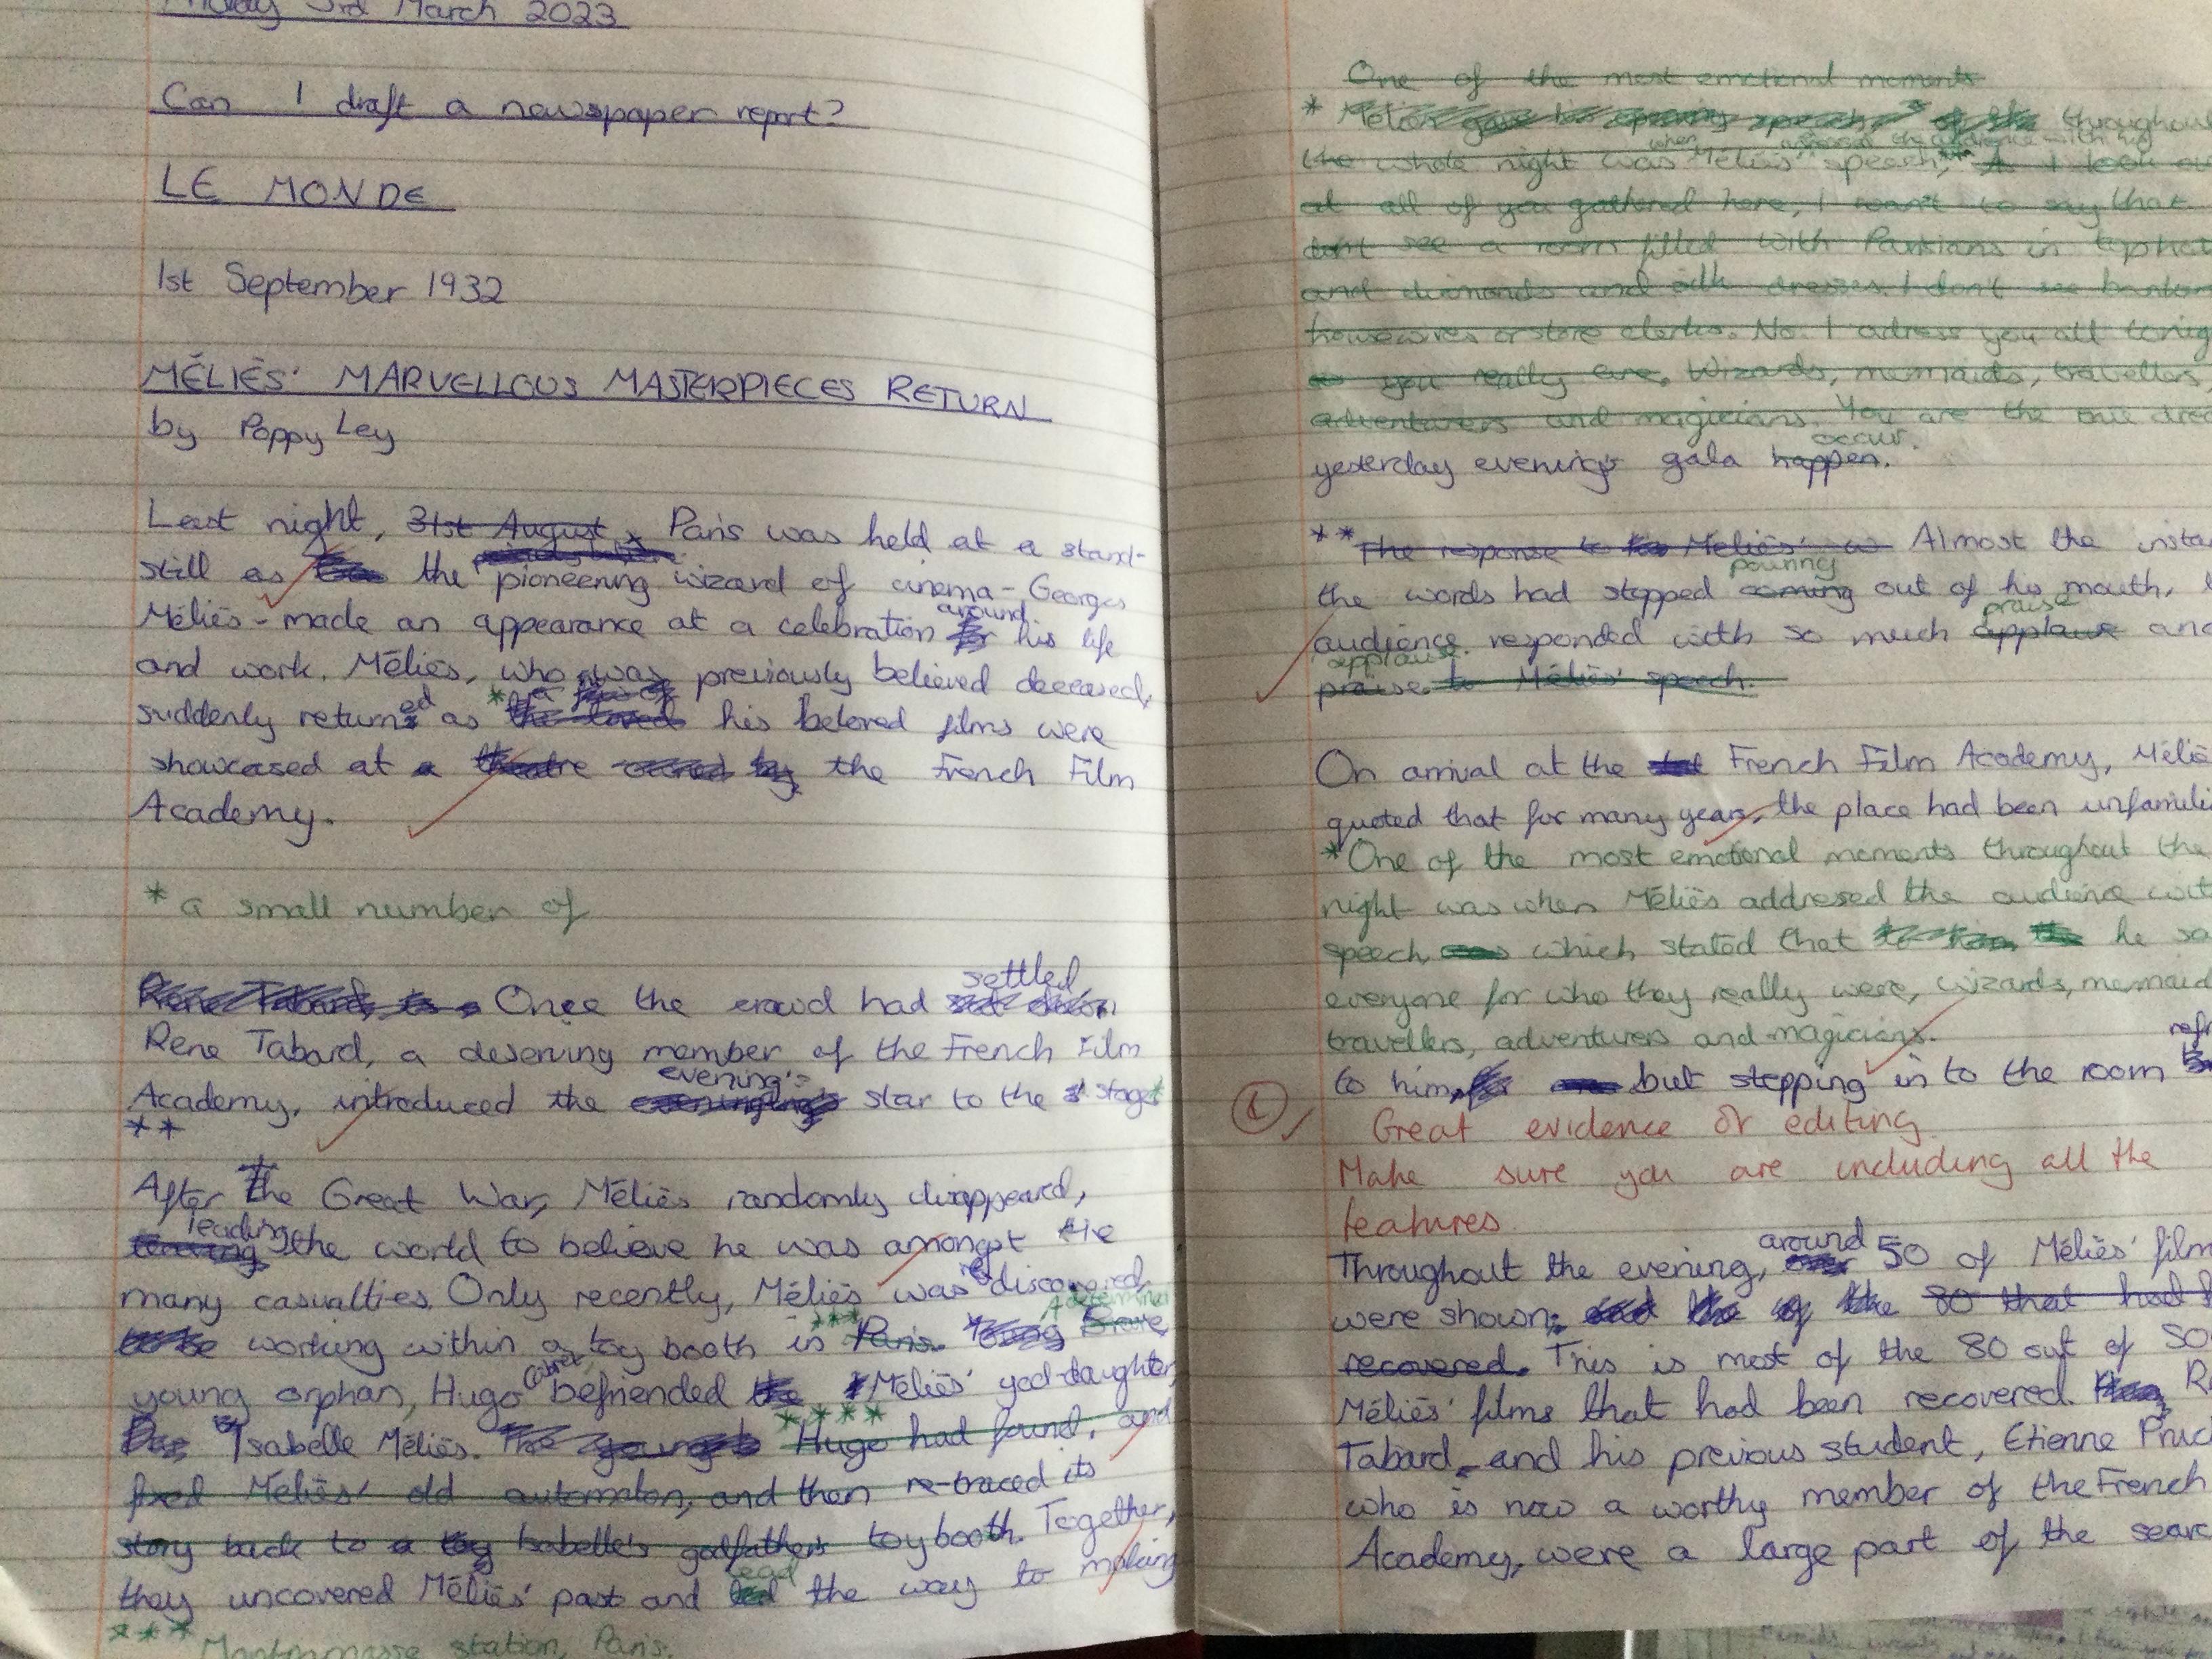 Friday 3rd March 2023
Can I draft a newspaper report?
LE MONDE
1st September 1932
MÉLIÈS' MARVELLOUS MASTERPIECES RETURN
by Poppy Ley
Last night, 31st August, Paris was held at a stand-
still as the pioneering wizard of cinema - Georges
around
Méliès - made an appearance at a celebration his life
and work. Méliès, who was previously believed deceased,
suddenly returned as * his beloved films were
showcased at a theatre owned by the French Film
Academy.
* a small number of
settled
Rene Tabard, is a Once the crowd had sat down
Rene Tabard, a deserving member of the French Film
evening's
Academy, introduced the star to the stage
**
After the Great War, Méliès randomly disappeared,
leading
the world to believe he was amongst the
many casualties. Only recently, Méliès was rediscovered,
A determined
working within a toy booth in *** Paris. Young brave
Cabret
young orphan, Hugo befriended the Méliès' god-daughter,
****
Isabelle Méliès. Hugo had found, and
fixed Méliès' old automaton, and then re-traced its
story back to a toy Isabelle's godfather's toy booth. Together,
lead
they uncovered Méliès' past and led the way to making
*** Montparnasse station, Paris.
One of the most emotional moments
* Méliès gave his opening speech, of the throughout
when addressed the audience with his
the whole night was Méliès' speech, As I look out
at all of you gathered here, I want to say that
don't see a room filled with Parisians in top hats
and diamonds and silk dresses. I don't see bankers
housewives or store clerks. No. I adress you all tonight
as you really are. Wizards, mermaids, travellers,
adventurers and magicians. You are the true
occur.
yesterday evening's gala happen.
** The response to Méliès' Almost the
pouring
the words had stopped coming out of his mouth,
praise
audience responded with so much applause and
applause.
praise. to Méliès' speech.
On arrival at the French Film Academy,
quoted that for many years, the place had been
* One of the most emotional moments throughout the
night was when Méliès addressed the audience with
speech, which stated that he
everyone for who they really were, wizards,
travellers, adventurers and magicians.
to him, but stepping in to the room
Great evidence of editing
Make sure you are including all the
features.
around
Throughout the evening, 50 of Méliès'
were shown; the 80 that had
recovered. This is most of the 80 out of
Méliès' films that had been recovered.
Tabard, and his previous student, Etienne
who is now a worthy member of the French
Academy, were a large part of the